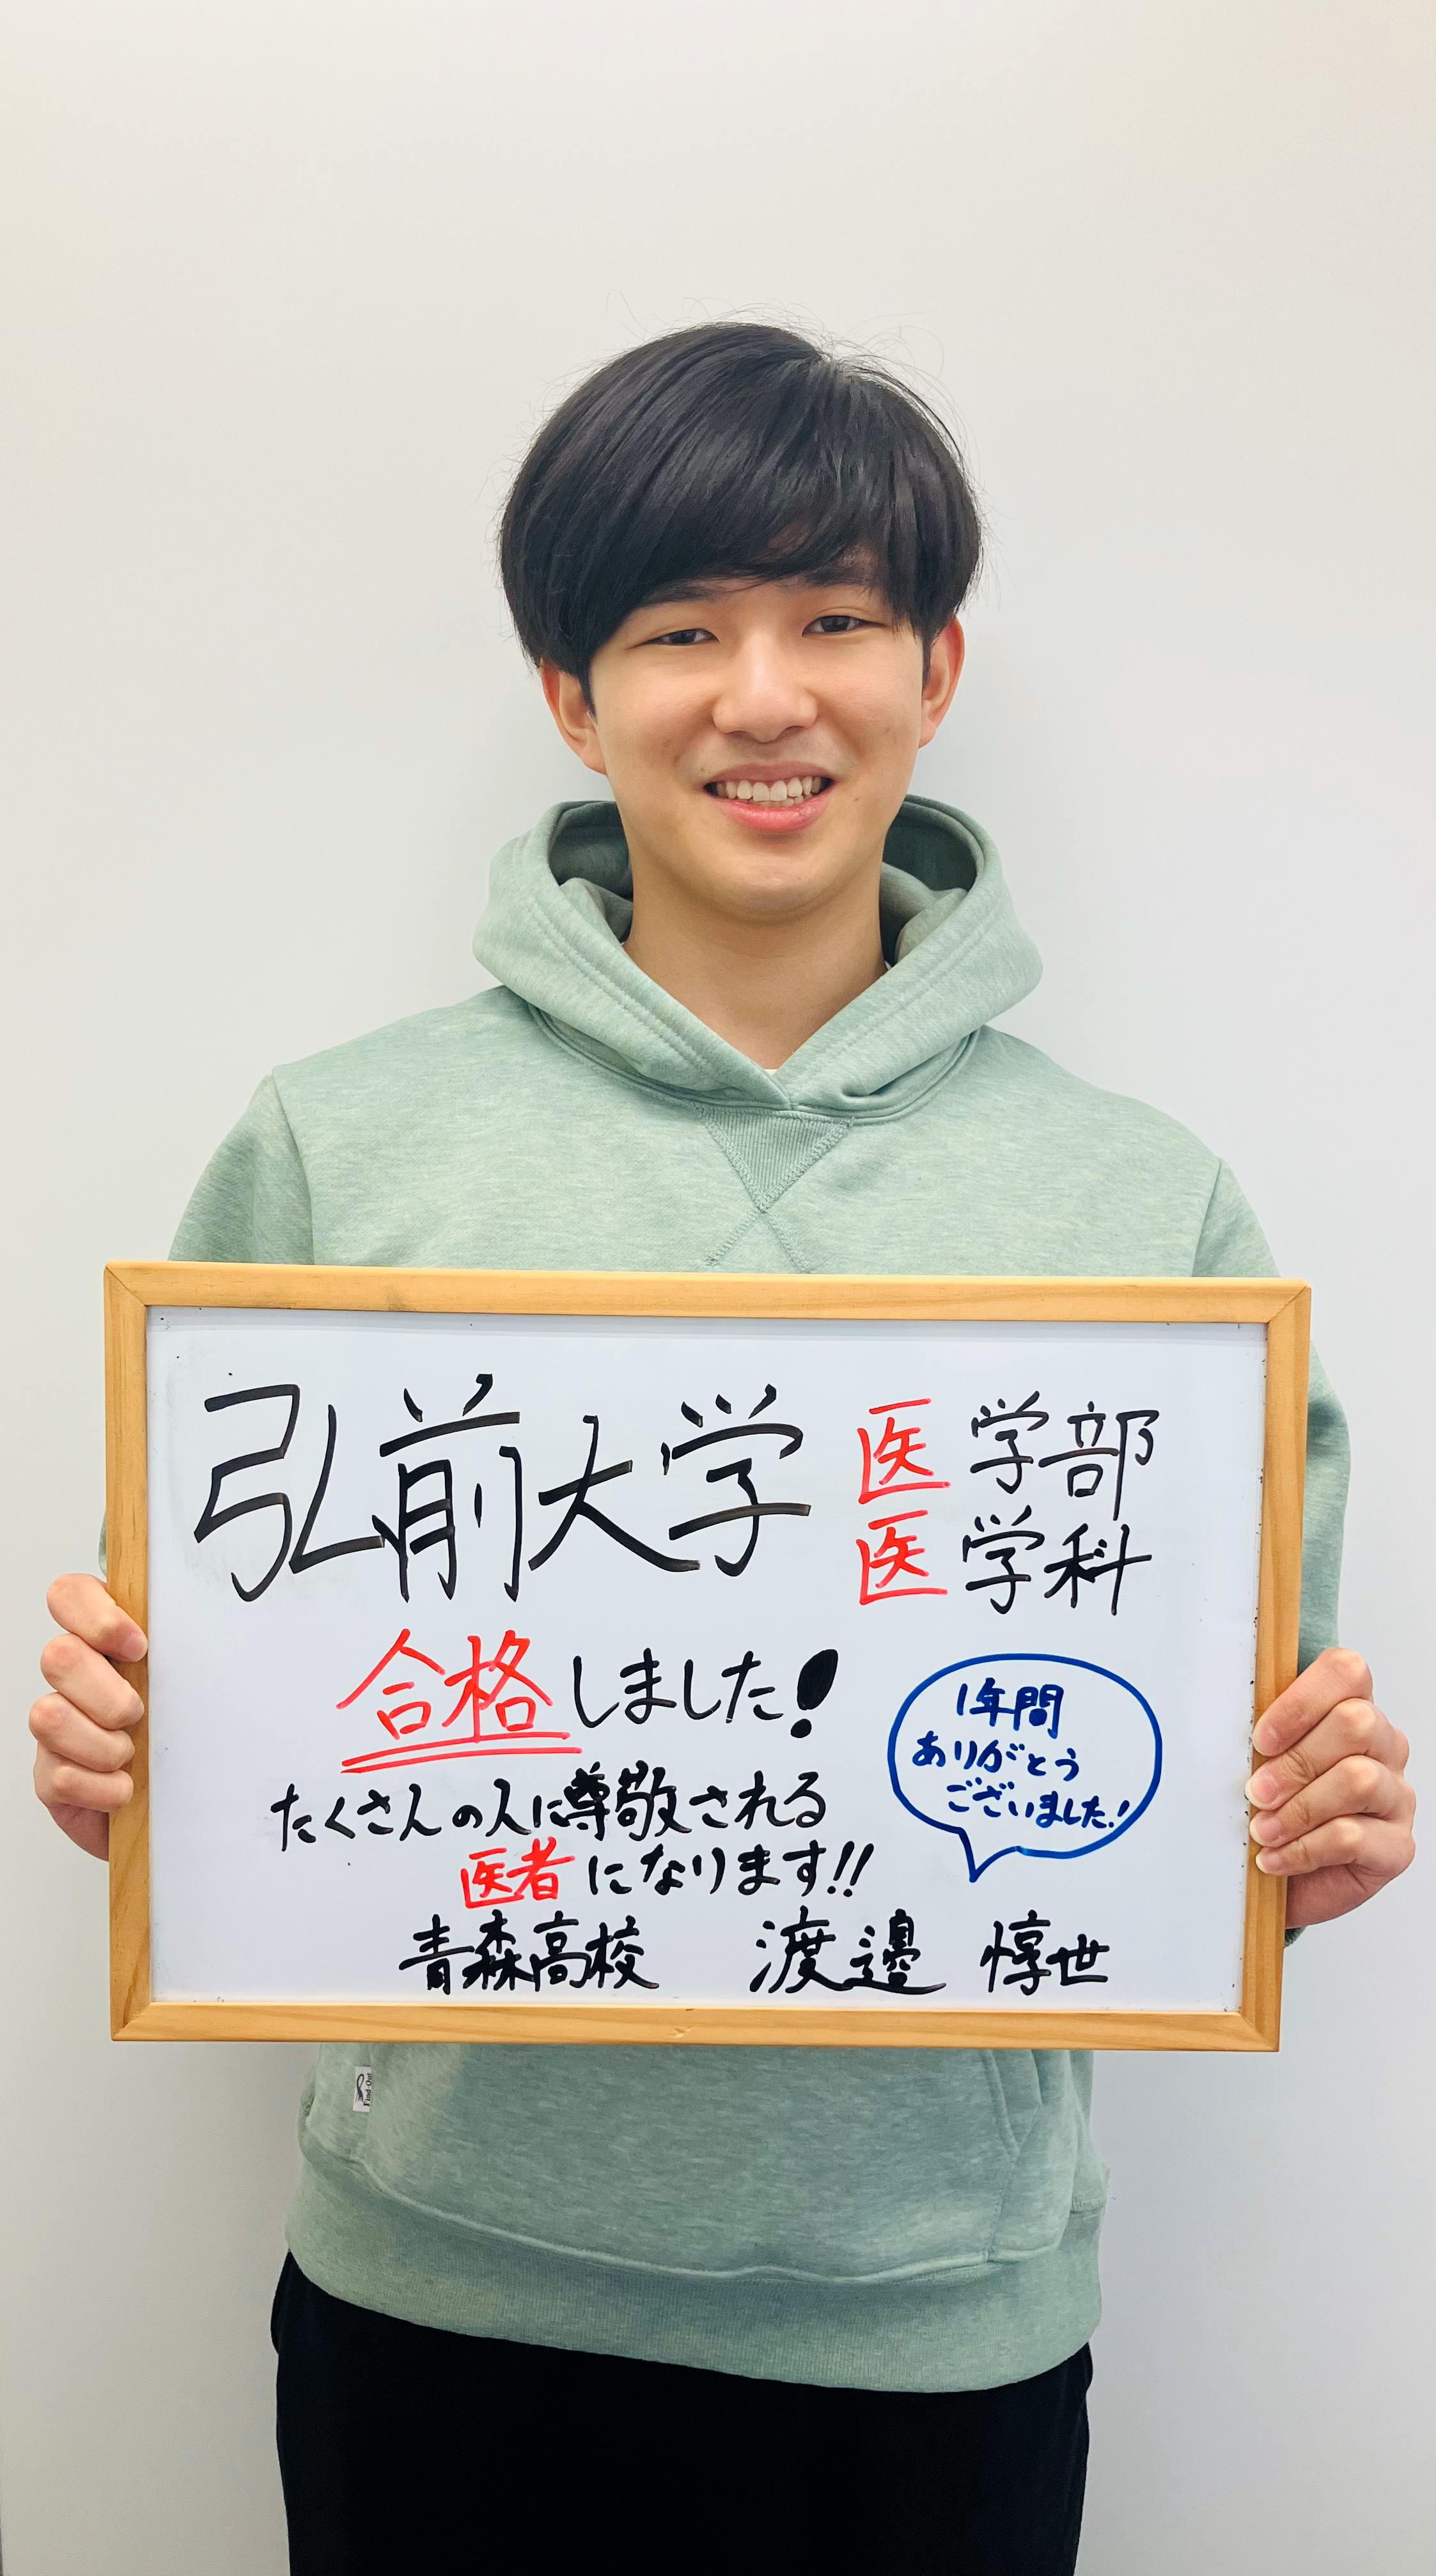 弘前大学
医学部
医学科
合格しました!
1年間
ありがとう
ございました!
たくさんの人に尊敬される
医者になります!!
青森高校 渡邉 惇世
Find-Out